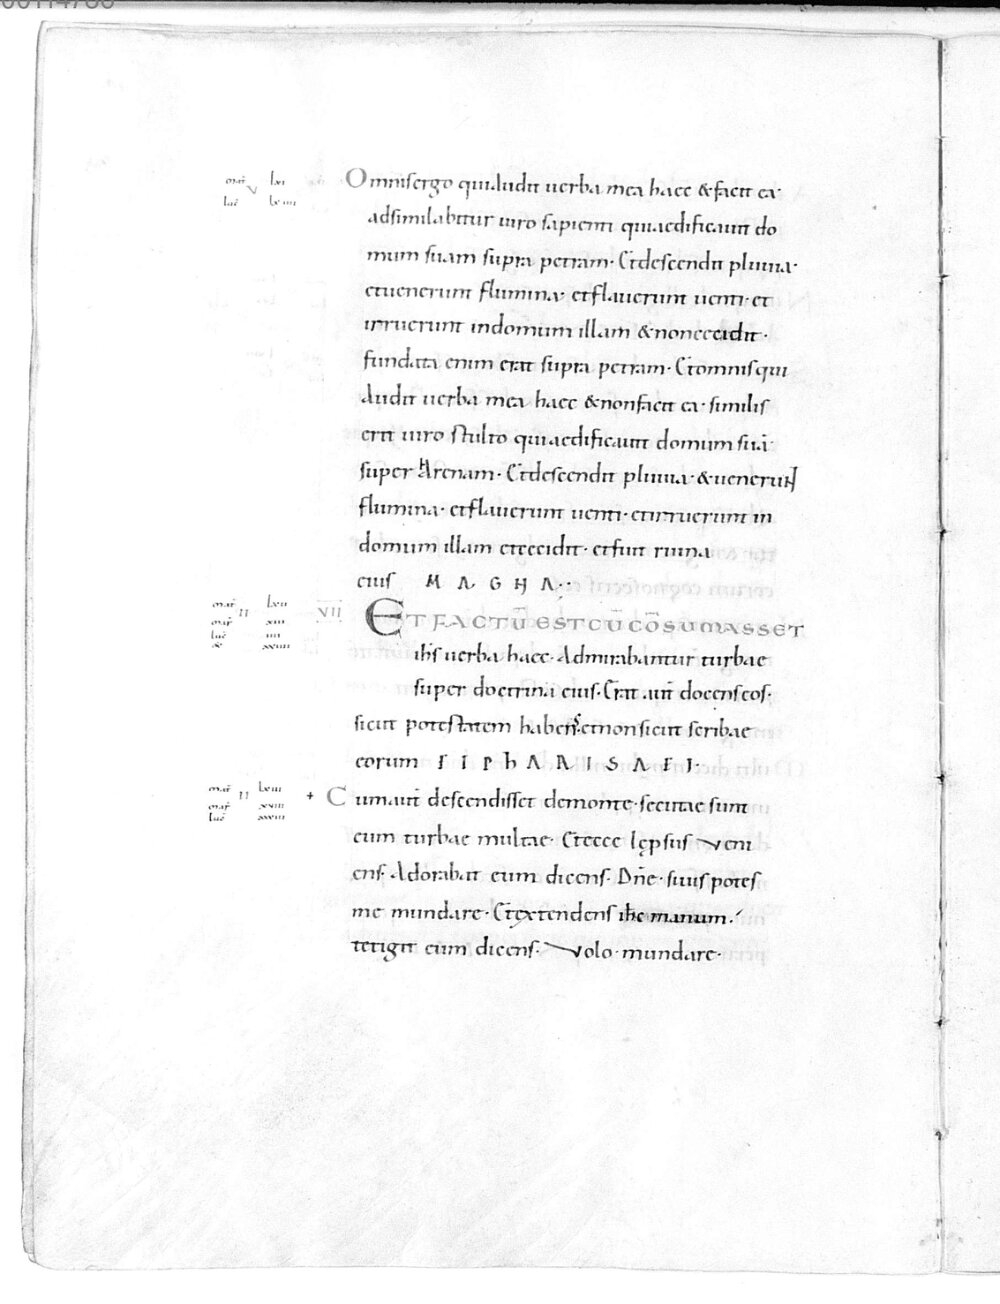 Omnisergo quiaudit uerba mea haec &facit ea·
adsimilabitur uiro sapienti quiaedificauit do
mum suam supra petram· Etdescendit pluuia·
etuenerunt flumina· etflauerunt uenti· et
irruerunt indomum illam &noncecidit·
fundata enim erat supra petram· Etomnisqui
Audit uerba mea haec &nonfacit ea· similis
erit uiro stulto quiaedificauit domum suā·
super Arenam· Etdescendit pluuia· &uenerunt
flumina· etflauerunt uenti· etirruerunt in
domum illam etcecidit· etfuit ruina
eius M A G N A··
mar̄ II lxii
mar̄ xiii
luc̄ iiii
xxiiii
VII
ETFACTŪESTCŪCŌSUMASSET
ih̄s uerba haec· Admirabantur turbae
super doctrina eius· Erat aut̄ docenseos·
sicut potestatem habens· etnonsicut scribae
eorum E T P h A R I S A E I·
mat̄ II lxiii
mar̄ xviii
luc̄ xxxiii
+ Cumaut̄ descendisset demonte· secutae sunt
eum turbae multae· Etecce lępsus Veni
ens· Adorabat eum dicens· Dn̄e· siuis potes
me mundare· Etextendens ih̄c manum·
tetigit eum dicens· Volo· mundare·